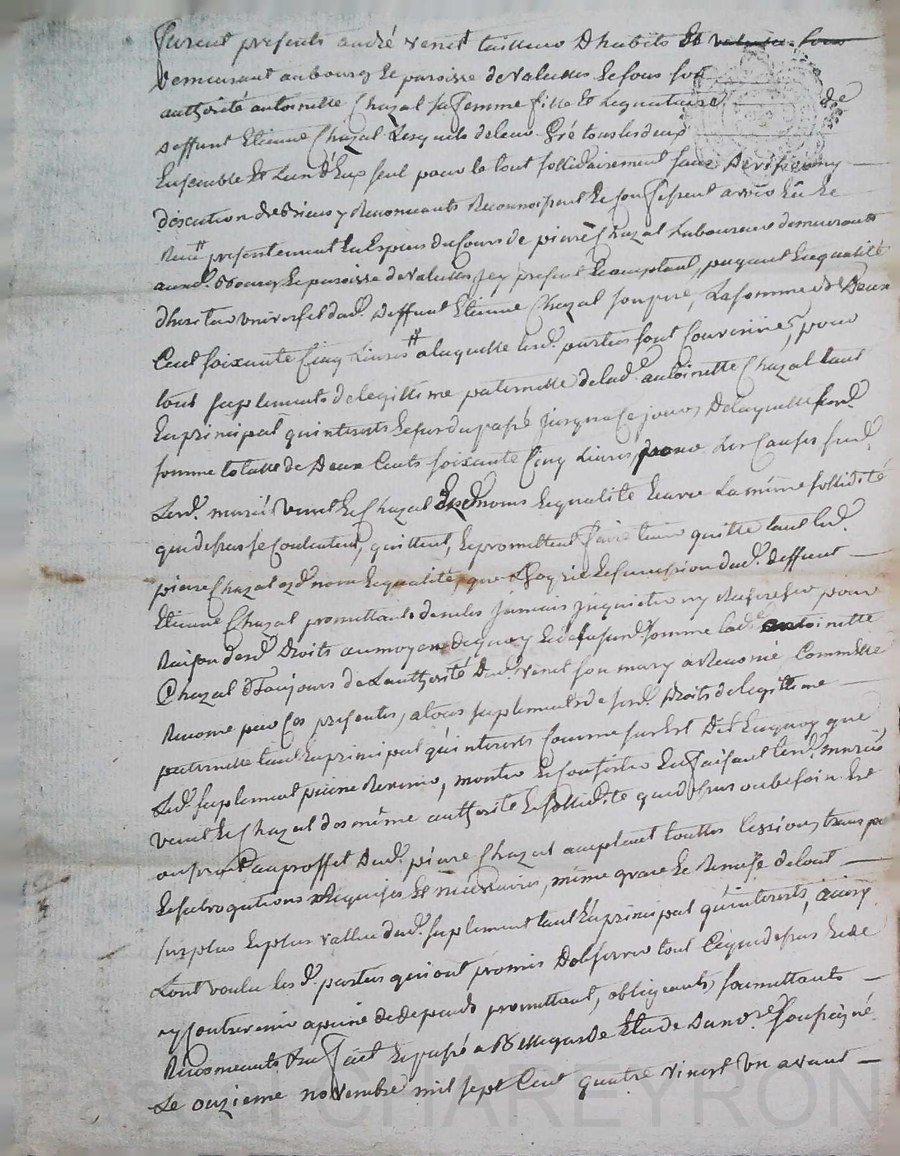 furent presents andré venit tailleur D'habits
Demeurant au bourg et paroisse de valettes Lefous son
authorité antoinette Chazal sa femme fille et Legataire de
deffunt Etienne Chazal Lesquels de leur Gré tous les deux
Ensemble Et L'un d'Eux seul pour le tout sollidairement sans Division ny
discution de Biens y Renonceants Reconnoissent Et Confessent avoir Eu Et
Reçu présentement En Espèces du Cours de pierre Chazal Laboureur demeurant
aud. Bourg Et paroisse de valettes jcy présent Et acceptant, payant En qualité
d'heritier universel dud. Deffunt Etienne Chazal son pere, La somme de Deux
Cent soixante Cinq Livres a laquelle lesd. parties sont Convenües, pour
tout suplements de legittime paternelle de lad. antoinette Chazal tant
En principal qu'interets Le surdu passé jusqu'a Ce jour, De laquelle susd.
somme totalle de Deux Cents soixante Cinq Livres, pour Les Causes susd.
Lesd. mariés venit Et Chazal Esd. noms Et qualité Et avec La même sollidité
que dessus se Contentent, quittent, Et promettent faire tenir quitte tant led.
pierre Chazal esd. nom Et qualité, que L'hoyrie Et succession dud. deffunt
Etienne Chazal promettants de ne les jamais jnquieter ny Rechercher pour
Raison desd. Droits au moyen de quoy Et de la susd. somme lad. antoinette
Chazal Toujours de L'authorité dud. venit son mary a Renoncé Comm'Elle
Renonce par Ces presentes, a tous suplements de susd. Droits de legittime
paternelle tant En principal qu'interets Comme sus Est Dit En quoy que
Led. suplement puisse Revenir, monter Et Consister En faisant lesd. mariés
venit Et Chazal dos même authorité Et sollidité que dessus ou besoin Est
ou seroit au proffit dud. pierre Chazal acceptant touttes Cessions, transports
Et subrogations Requises Et necessaires, même grace Et Remise de tout
surplus Et plus vallue dud. suplement tant En principal qu'interets, ainsy
L'ont voulu lesd. parties qui ont promis D'observer tout Ce que dessus Et de
ny Contrevenir a peine de depends promettant, obligeants, soumettants
Renonceants Fait Et passé a Bellegarde Etude Du no.re soussigné
Le onzieme novembre mil sept Cent quatre vingt un avant